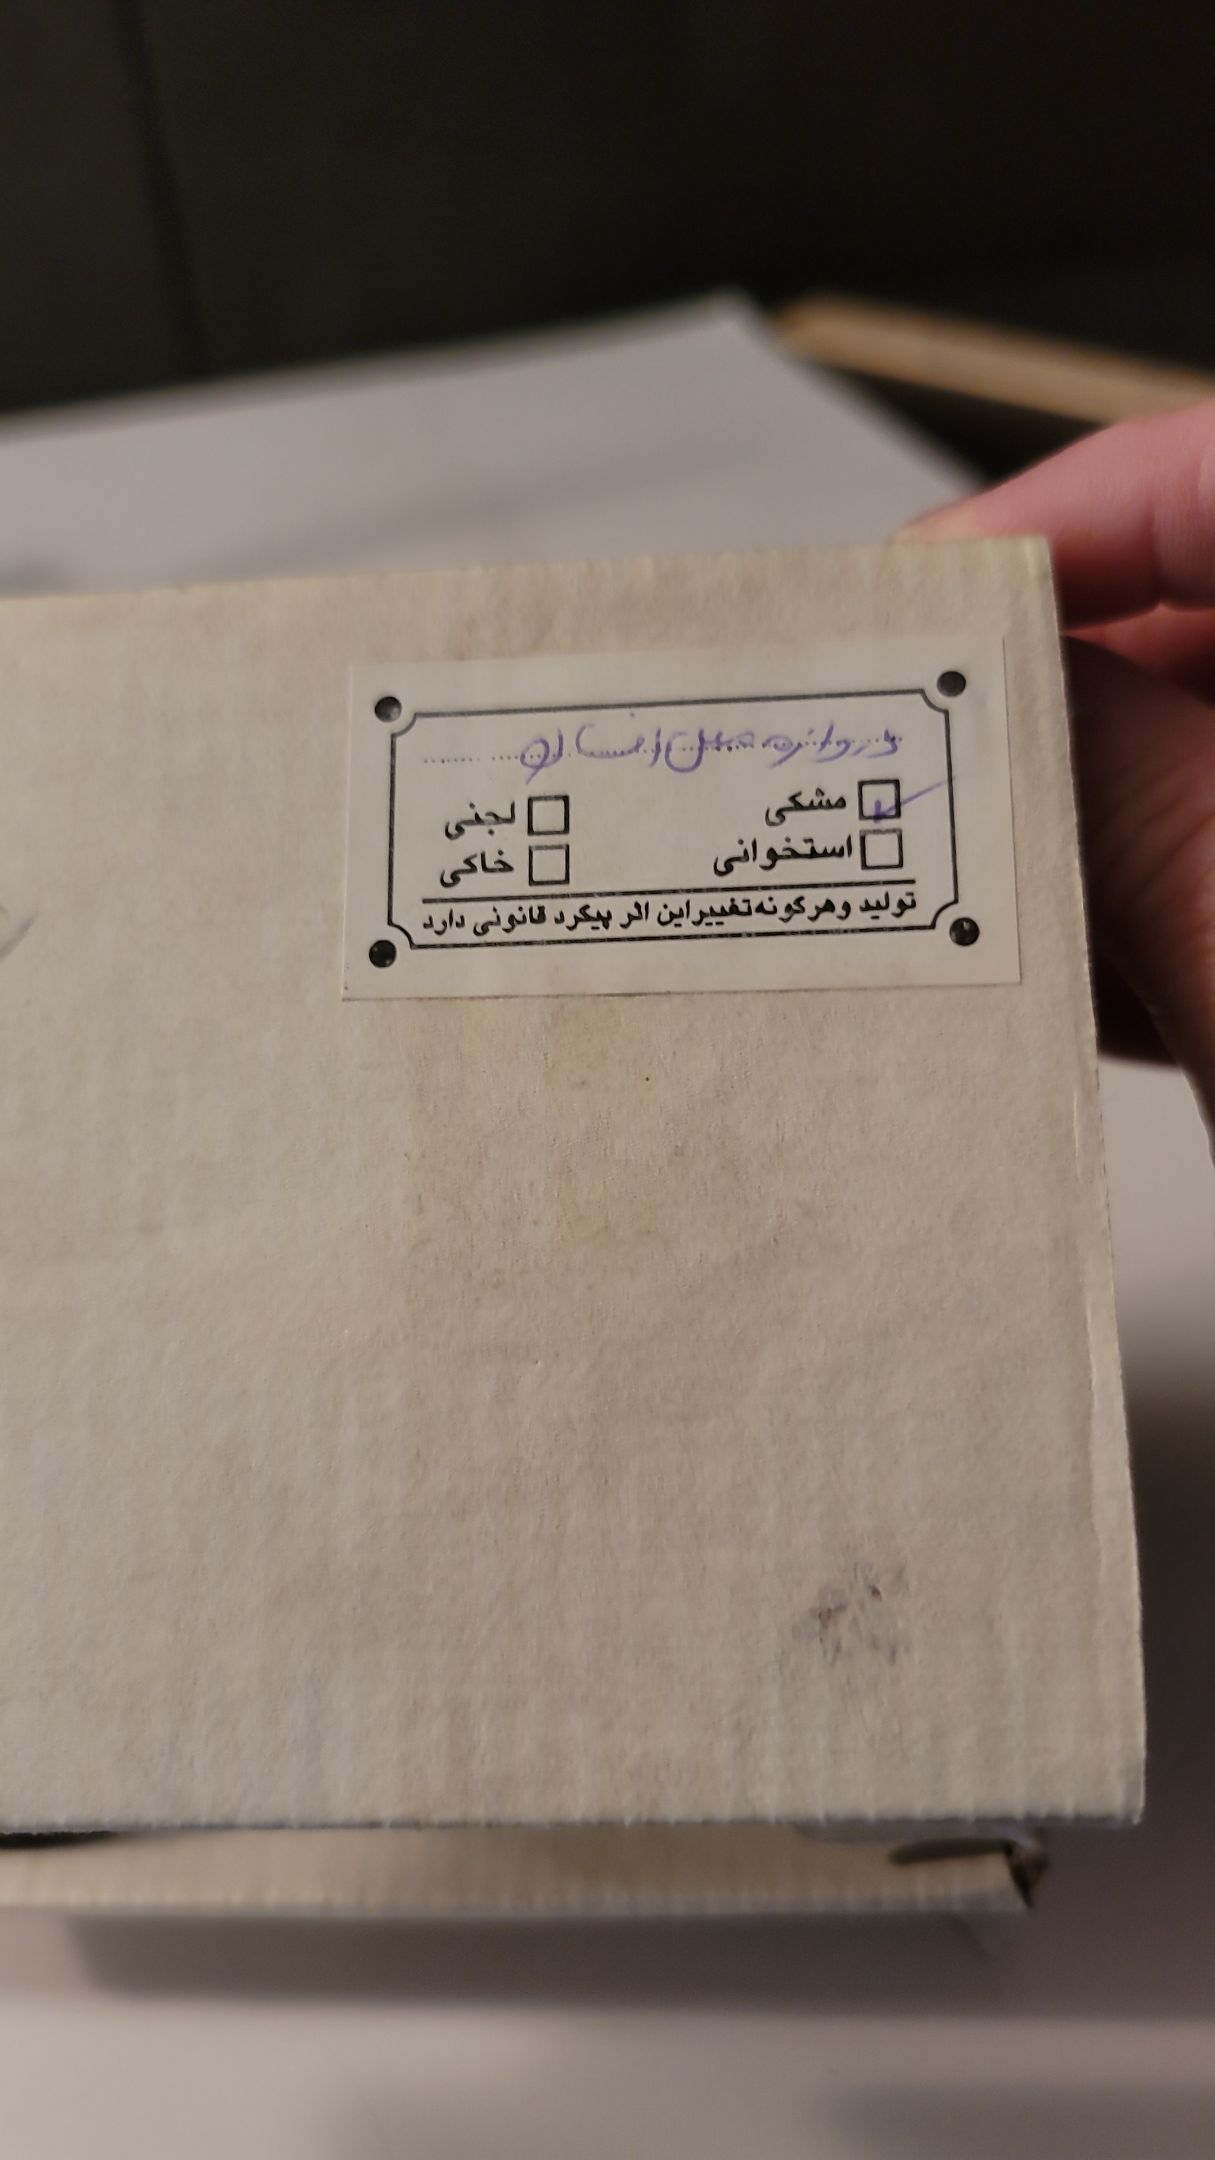 دروازه ملل احسان
مشکی
لجنی
استخوانی
خاکی
تولید و هرگونه تغییر این اثر پیگرد قانونی دارد